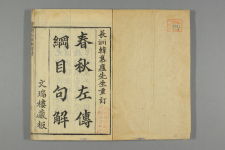 長洲韓慕廬先生重訂
春秋左傳
綱目句解
文瑞樓藏板